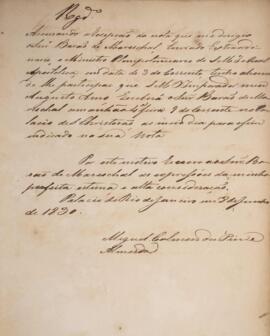 Accusando a recepção da nota que me dirigio
o Snr Barão de Mareschal Enviado Extraordi-
nario, e Ministro Plenipotenciario de S. M. I. Real
Apostolica em data de 3 do Corrente tenho a honra
de lhe participar que S. M. O Imperador meu
Augusto Amo receberá o Snr Barão de Ma-
reschal amanhã 4 feira 9 do Corrente no Pa-
lacio de ao meio dia para o fim
indicado na sua Nota
Por este motivo o Snr Ba-
rão de Mareschal as expressões da minha
perfeita estima e alta consideração.
Palacio do Rio de Janeiro em de Junho
de 1830.
Miguel Calmon du Pin e
Almeida